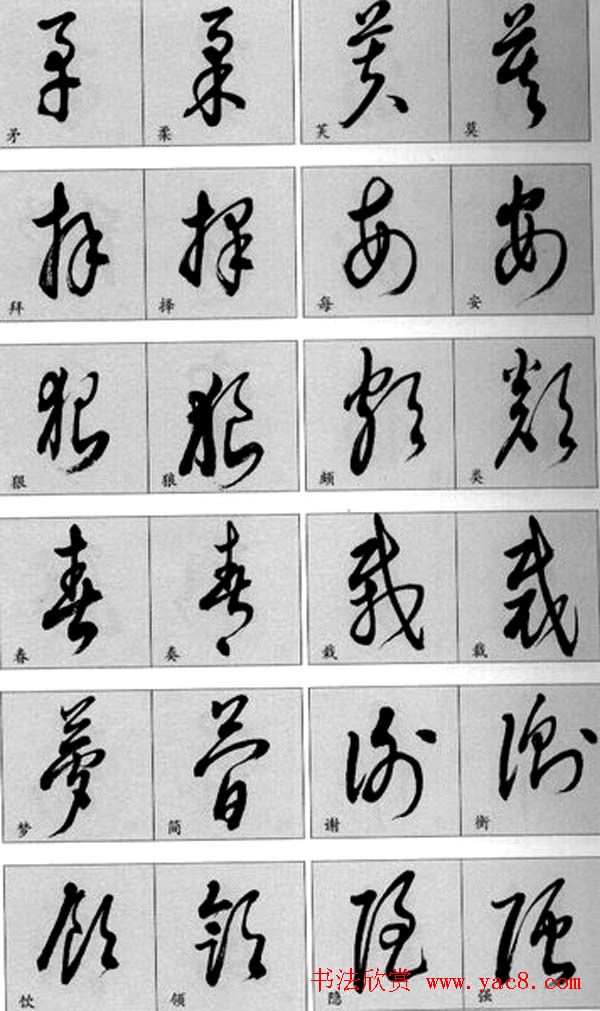 矛 柔 芙 莫
拜 择 每 安
狠 狼 颇 类
春 奏 栽 裁
梦 简 谢 衡
饮 领 隐 强
书法欣赏 www.yac8.com